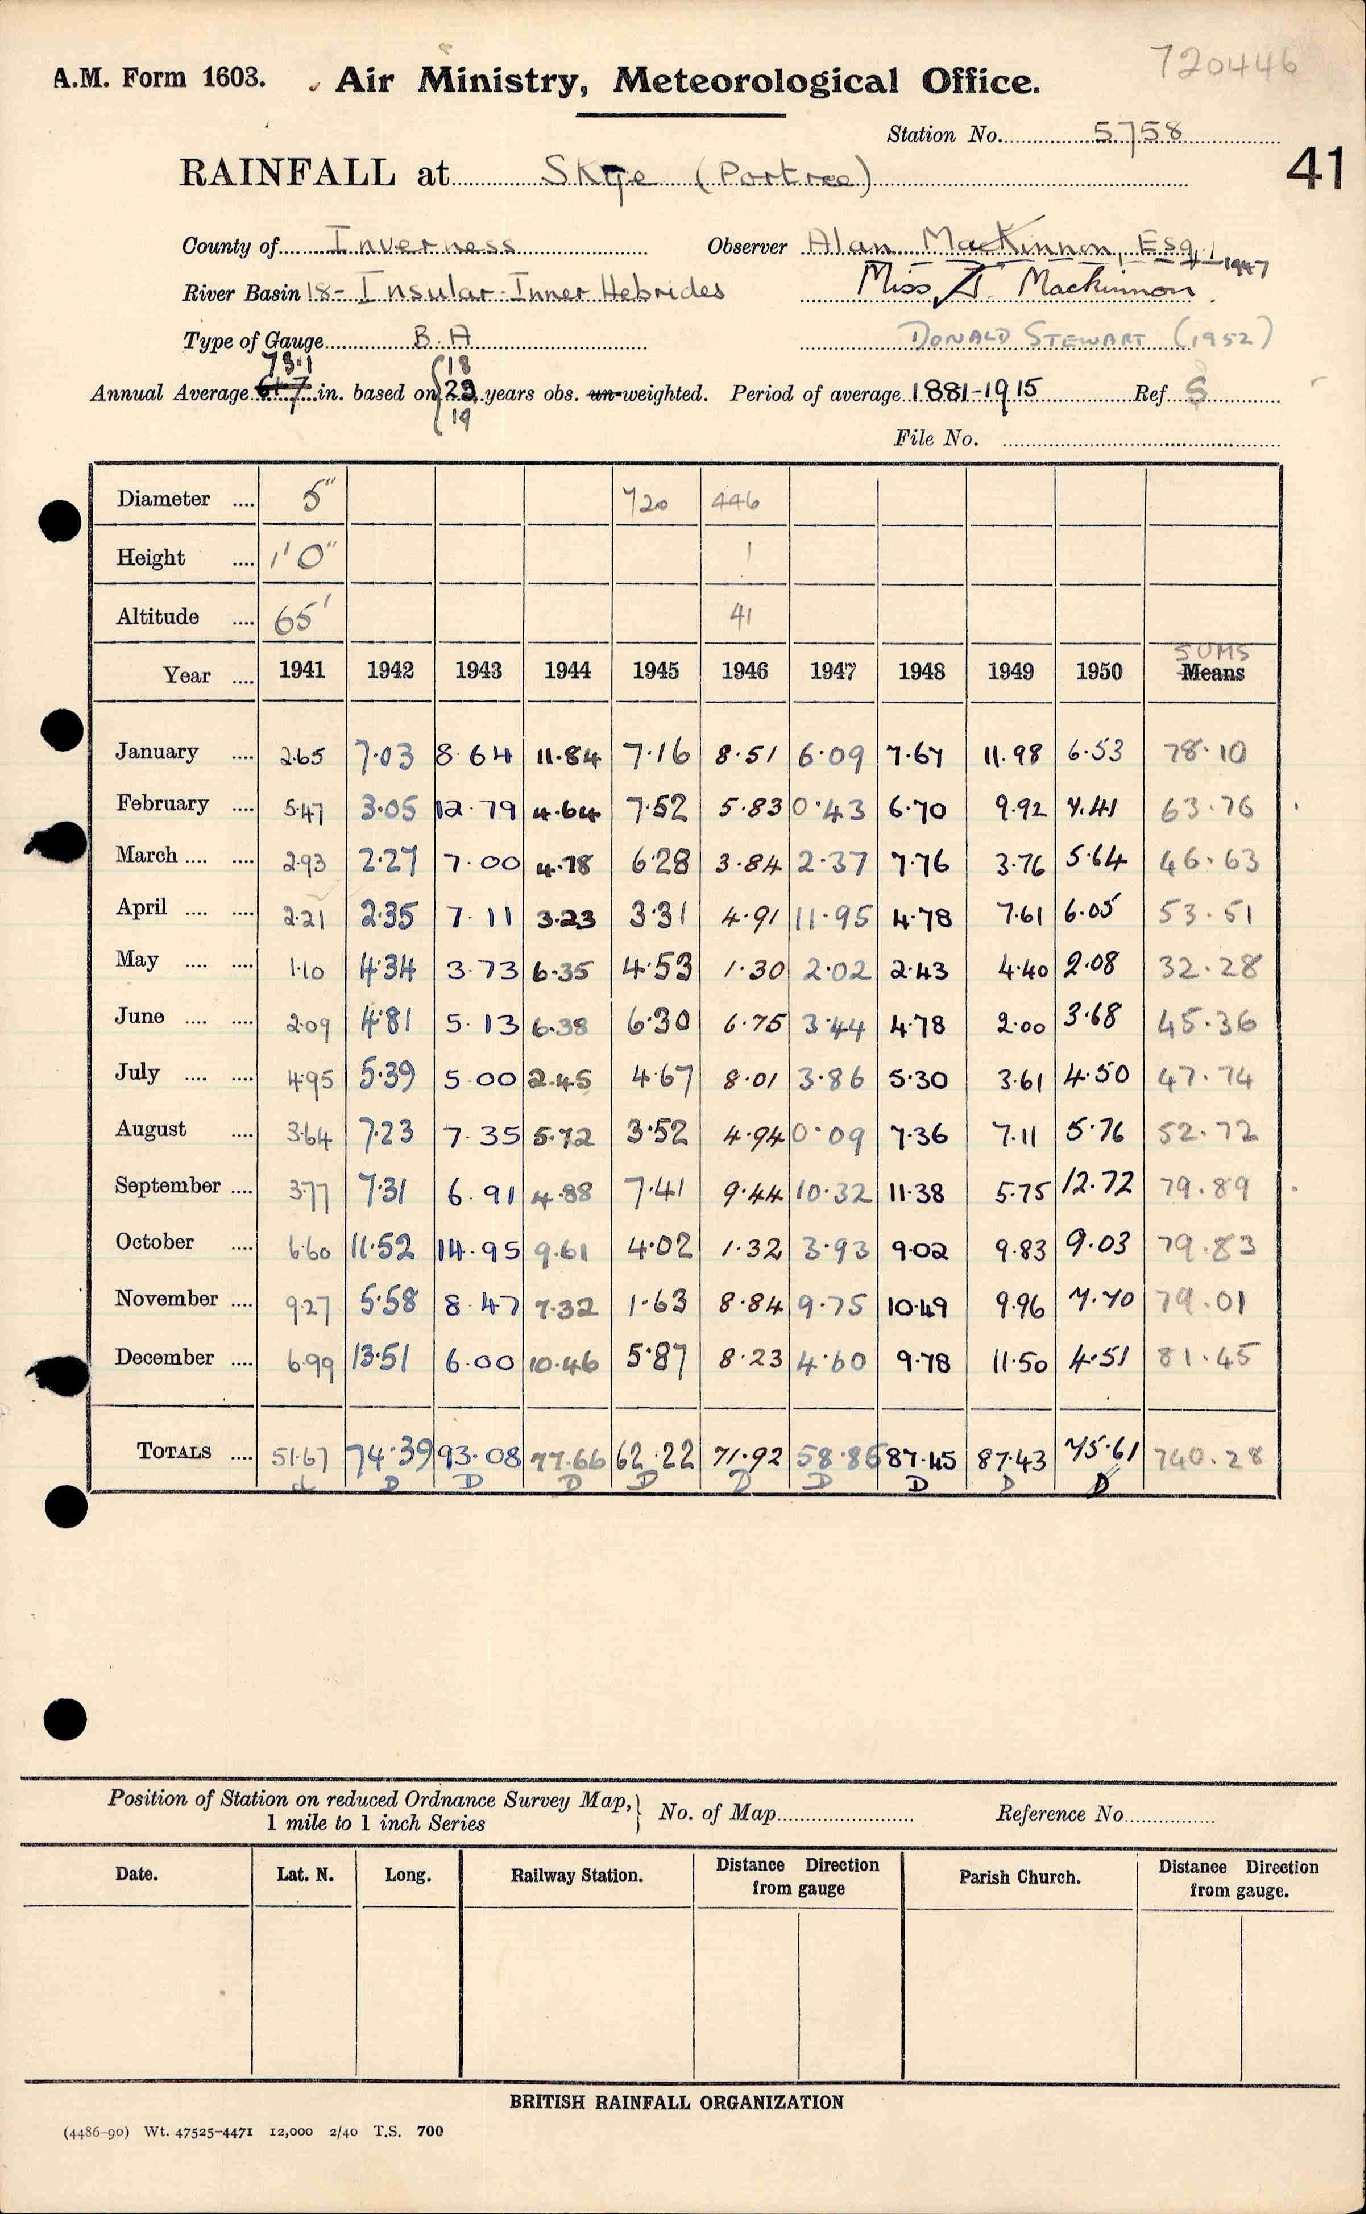 720446
A.M. Form 1603. Air Ministry, Meteorological Office.
Station No. 5758
41
RAINFALL at Skye (Portree)
County of Inverness Observer Alan MacKinnon, Esq. 1947
River Basin 18- Insular-Inner Hebrides Miss D. Mackinnon.
Type of Gauge B.A Donald Stewart (1952)
73.1 18
Annual Average 64.7 in. based on 23 years obs. un-weighted. Period of average 1881-1915 Ref. S
19
File No.
Diameter 5" 720 446
Height 1'0" 1
Altitude 65' 41
SUMS
Year 1941 1942 1943 1944 1945 1946 1947 1948 1949 1950 Means
January 2.65 7.03 8.64 11.84 7.16 8.51 6.09 7.67 11.98 6.53 78.10
February 5.47 3.05 12.79 4.64 7.52 5.83 0.43 6.70 9.92 7.41 63.76
March 2.93 2.27 7.00 4.78 6.28 3.84 2.37 7.76 3.76 5.64 46.63
April 2.21 2.35 7.11 3.23 3.31 4.91 11.95 4.78 7.61 6.05 53.51
May 1.10 4.34 3.73 6.35 4.53 1.30 2.02 2.43 4.40 2.08 32.28
June 2.09 4.81 5.13 6.38 6.30 6.75 3.44 4.78 2.00 3.68 45.36
July 4.95 5.39 5.00 2.45 4.67 8.01 3.86 5.30 3.61 4.50 47.74
August 3.64 7.23 7.35 5.72 3.52 4.94 0.09 7.36 7.11 5.76 52.72
September 3.77 7.31 6.91 4.88 7.41 9.44 10.32 11.38 5.75 12.72 79.89
October 6.60 11.52 14.95 9.61 4.02 1.32 3.93 9.02 9.83 9.03 79.83
November 9.27 5.58 8.47 7.32 1.63 8.84 9.75 10.49 9.96 7.70 79.01
December 6.99 13.51 6.00 10.46 5.87 8.23 4.60 9.78 11.50 4.51 81.45
TOTALS 51.67 74.39 93.08 77.66 62.22 71.92 58.85 87.45 87.43 75.61 740.28
D D D D D D D D D
Position of Station on reduced Ordnance Survey Map, No. of Map Reference No.
1 mile to 1 inch Series
Date. Lat. N. Long. Railway Station. Distance Direction from gauge Parish Church. Distance Direction from gauge.
BRITISH RAINFALL ORGANIZATION
(4486-90) Wt. 47525-4471 12,000 2/40 T.S. 700